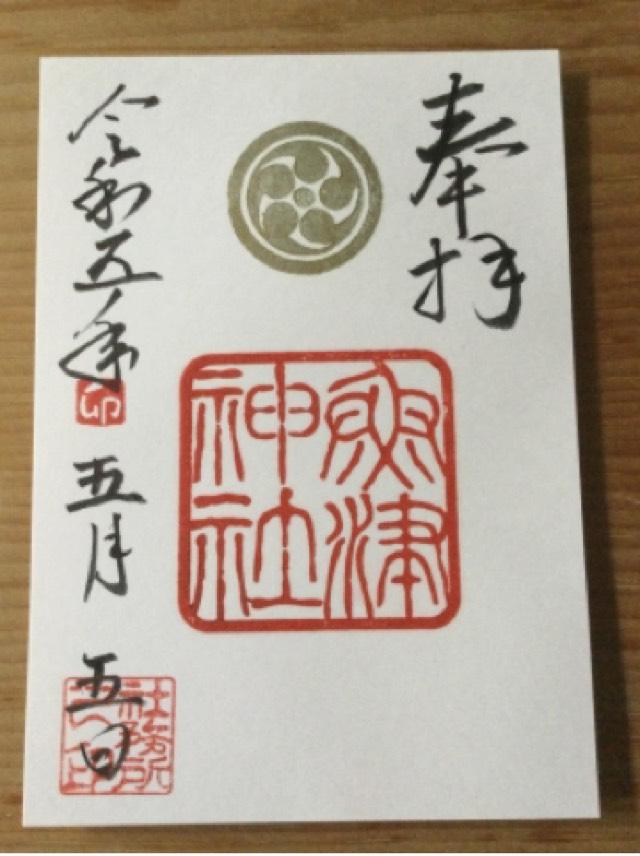 奉拝
津
神社
令和五年
卯
五月
五日
社務所
之印